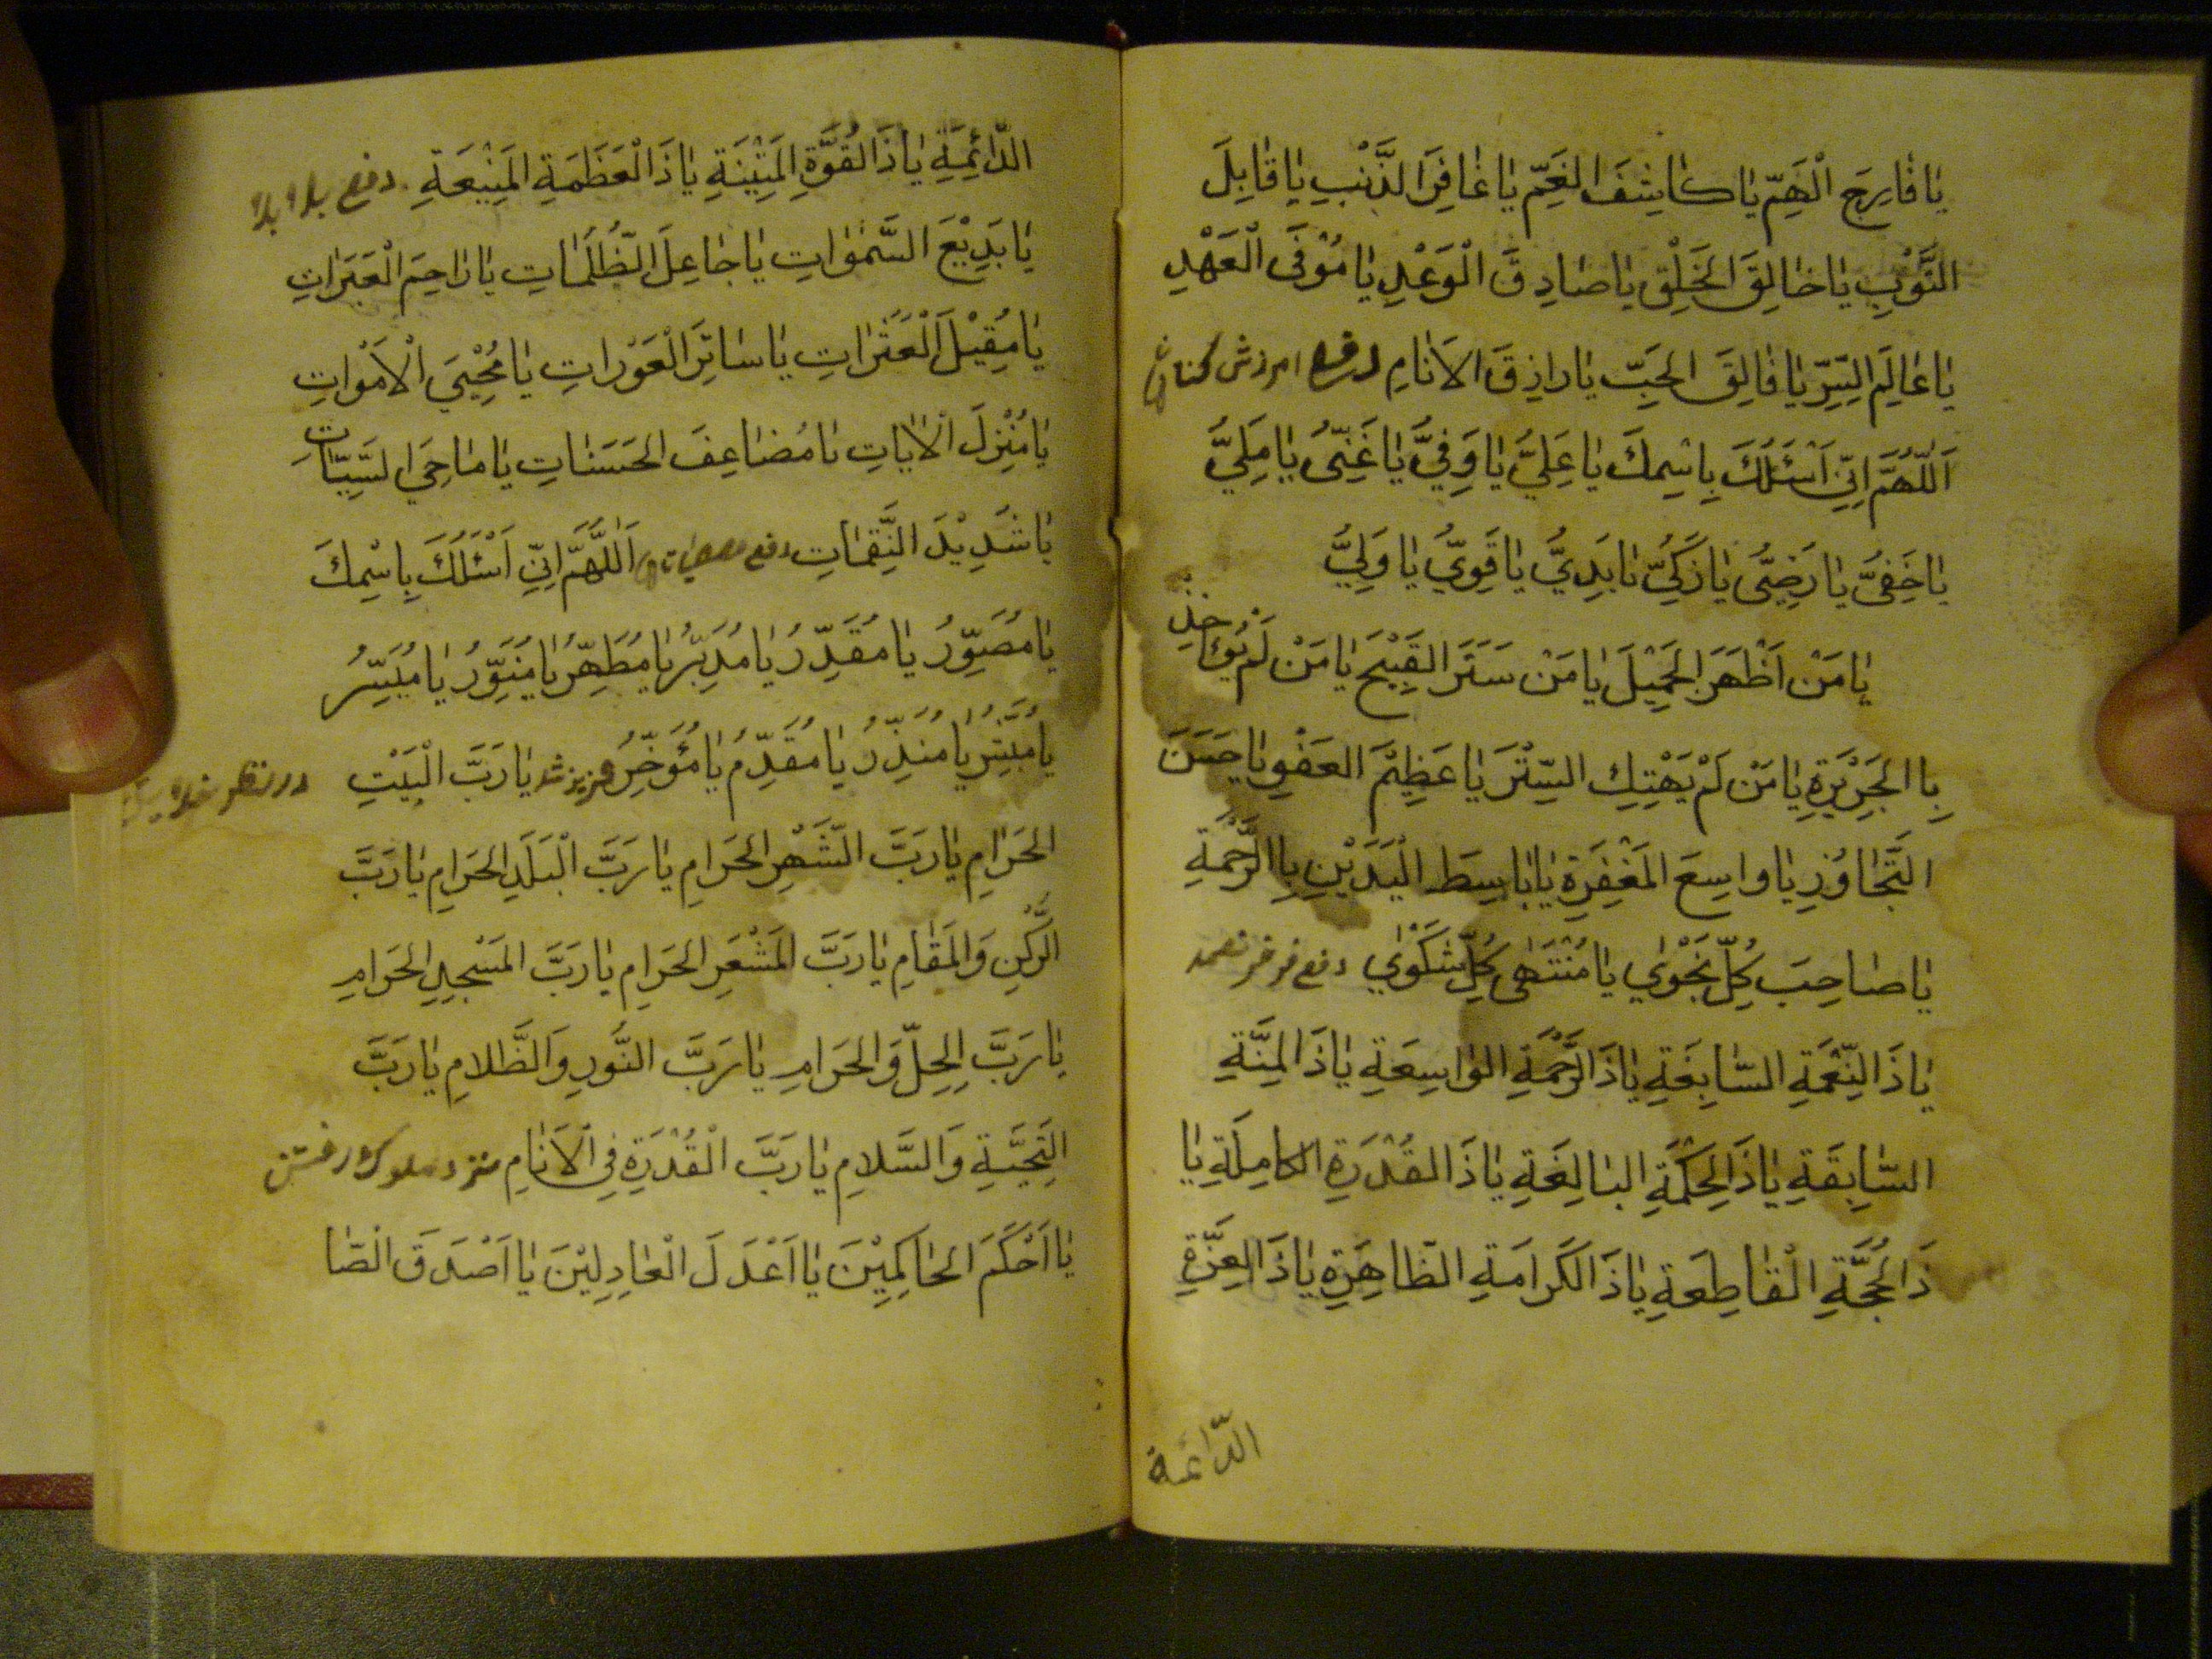 يٰا فٰارِجَ الْهَمِّ يٰا كٰاشِفَ الغَمِّ يٰا غٰافِرَ الذَّنْبِ يٰا قٰابِلَ
التَّوْبِ يٰا خٰالِقَ الخَلْقِ يٰا صٰادِقَ الْوَعْدِ يٰا مُوْفَى الْعَهْدِ
يٰا عٰالِمَ السِّرِّ يٰا فٰالِقَ الحَبِّ يٰا رٰازِقَ الاَنٰامِ امرزش كناهان
اَللّٰهُمَّ اِنِّى اَسْئَلُكَ بِاسْمِكَ يٰا عَلِيُّ يٰا وَفِيُّ يٰا غَنِىُّ يٰا مَلِيُّ
يٰا خَفِىُّ يٰا رَضِىُّ يٰا زَكِىُّ يٰا بَدِىُّ يٰا قَوِيُّ يٰا وَلِيُّ
يٰا مَنْ اَظْهَرَ الجَمِيْلَ يٰا مَنْ سَتَرَ القَبِيْحَ يٰا مَنْ لَمْ يُؤٰاخِذْ
بِا الجَرِيْرَةِ يٰا مَنْ لَمْ يَهْتِكِ السِّتْرَ يٰا عَظِيْمَ العَفْوِ يٰا حَسَنَ
التَّجٰاوُزِ يٰا وٰاسِعَ المَغْفِرَةِ يٰا بٰاسِطَ الْيَدَيْنِ بِا الرَّحْمَةِ
يٰا صٰاحِبَ كُلِّ نَجْوٰي يٰا مُنْتَهٰى كُلِّ شَكْوٰي دفع
يٰا ذَا النِّعْمَةِ السّٰابِغَةِ يٰا ذَا الرَّحْمَةِ الوٰاسِعَةِ يٰا ذَا المِنَّةِ
السّٰابِقَةِ يٰا ذَا الحِكْمَةِ البٰالِغَةِ يٰا ذَا القُدْرَةِ الكٰامِلَةِ يٰا
ذَا الحُجَّةِ الْقٰاطِعَةِ يٰا ذَا الكَرٰامَةِ الظّٰاهِرَةِ يٰا ذَا العِزَّةِ
الدّائمة
الدّٰائِمَةِ يٰا ذَا القُوَّةِ المَتِيْنَةِ يٰا ذَا الْعَظَمَةِ المَنِيْعَةِ دفع بلاء
يٰا بَدِيْعَ السَّمٰوٰاتِ يٰا جٰاعِلَ الظُّلُمٰاتِ يٰا رٰاحِمَ الْعَبَرٰاتِ
يٰا مُقِيْلَ الْعَثَرٰاتِ يٰا سٰاتِرَ الْعَوْرٰاتِ يٰا مُحْيِيَ الْاَمْوٰاتِ
يٰا مُنْزِلَ الْاٰيٰاتِ يٰا مُضٰاعِفَ الحَسَنٰاتِ يٰا مٰاحِيَ السَّيِّئٰاتِ
يٰا شَدِيْدَ النَّقِمٰاتِ دفع اَللّٰهُمَّ اِنِّى اَسْئَلُكَ بِاسْمِكَ
يٰا مُصَوِّرُ يٰا مُقَدِّرُ يٰا مُدَبِّرُ يٰا مُطَهِّرُ يٰا مُنَوِّرُ يٰا مُيَسِّرُ
يٰا مُبَشِّرُ يٰا مُنْذِرُ يٰا مُقَدِّمُ يٰا مُؤَخِّرُ عزيز شد يٰا رَبَّ الْبَيْتِ در نظر
الحَرٰامِ يٰا رَبَّ الشَّهْرِ الحَرٰامِ يٰا رَبَّ الْبَلَدِ الحَرٰامِ يٰا رَبَّ
الرُّكْنِ وَالمَقٰامِ يٰا رَبَّ المَشْعَرِ الحَرٰامِ يٰا رَبَّ المَسْجِدِ الحَرٰامِ
يٰا رَبَّ الحِلِّ وَالحَرٰامِ يٰا رَبَّ النُّورِ وَالظَّلامِ يٰا رَبَّ
التَّحِيَّةِ وَالسَّلامِ يٰا رَبَّ الْقُدْرَةِ فِى الْاَنٰامِ ملوك رفتن
يٰا اَحْكَمَ الحٰاكِمِيْنَ يٰا اَعْدَلَ الْعٰادِلِيْنَ يٰا اَصْدَقَ الصّٰا